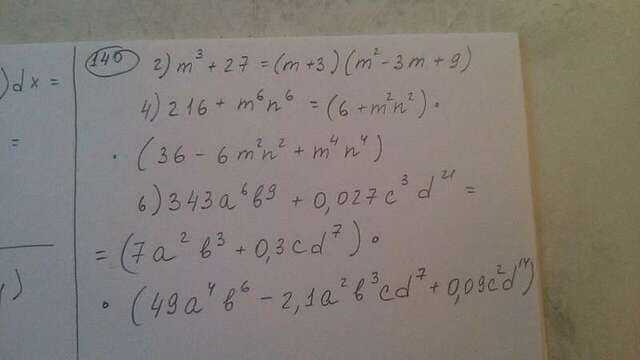 146 2) m³ + 27 = (m+3)(m² - 3m + 9)
)dx =
4) 216 + m⁶n⁶ = (6 + m²n²)·
=
· (36 - 6m²n² + m⁴n⁴)
6) 343a⁶b⁹ + 0,027c³d²¹ =
= (7a²b³ + 0,3cd⁷)·
· (49a⁴b⁶ - 2,1a²b³cd⁷ + 0,09c²d¹⁴)
)